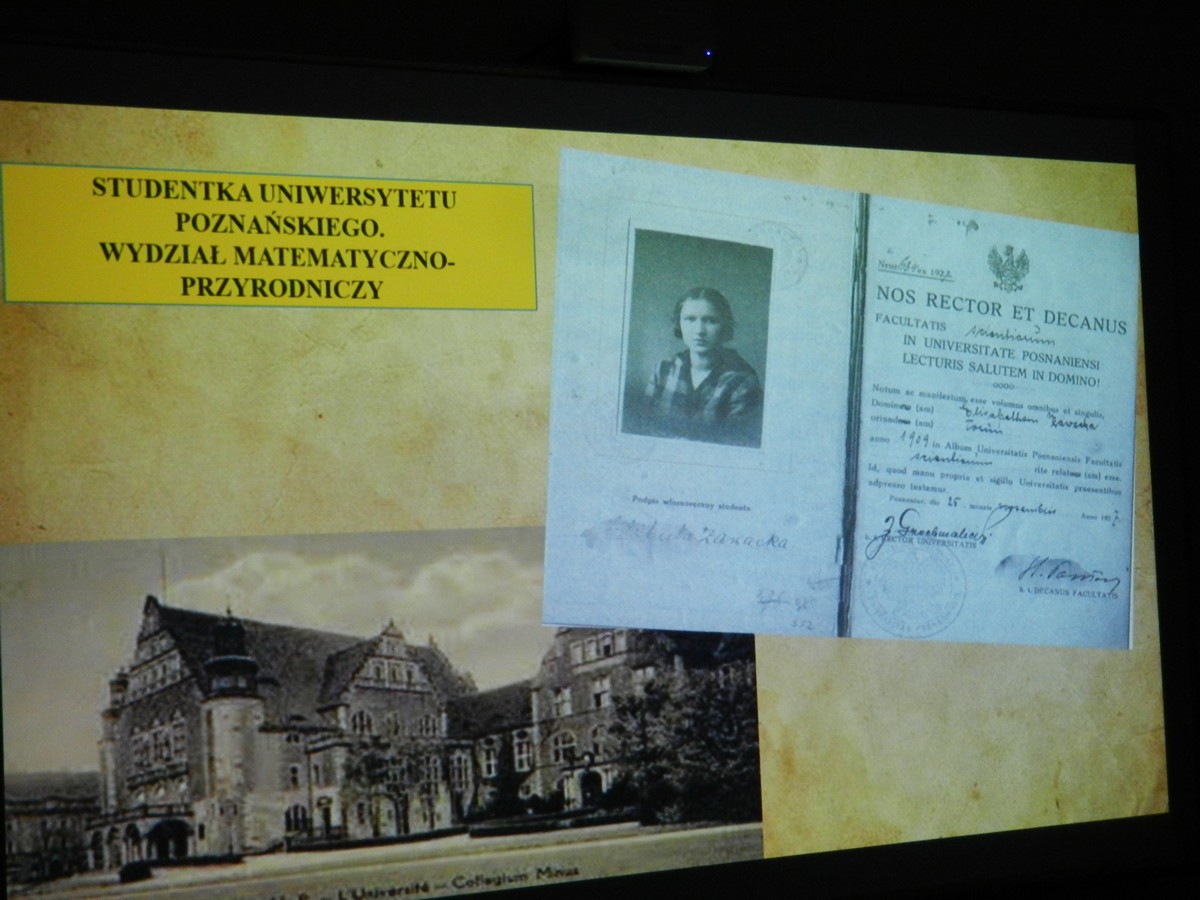 STUDENTKA UNIWERSYTETU
POZNAŃSKIEGO.
WYDZIAŁ MATEMATYCZNO-
PRZYRODNICZY
Podpis własnoręczny studenta
Elżbieta Zawacka
NOS RECTOR ET DECANUS
FACULTATIS scientiarum
IN UNIVERSITATE POSNANIENSI
LECTURIS SALUTEM IN DOMINO!
Notum ac manifestum esse volumus omnibus et singulis,
Domin (am) Elisabetham Zawacka
oriund (am) Toruń
anno 1909 in Album Universitatis Posnaniensis Facultatis
scientiarum rite relat (am) esse.
Id, quod manu propria et sigillo Universitatis praesentibus
adpresso testamur.
Posnaniae, die 25 mensis Anno 1927.
RECTOR UNIVERSITATIS
h. t. DECANUS FACULTATIS
L'Université — Collegium Minus